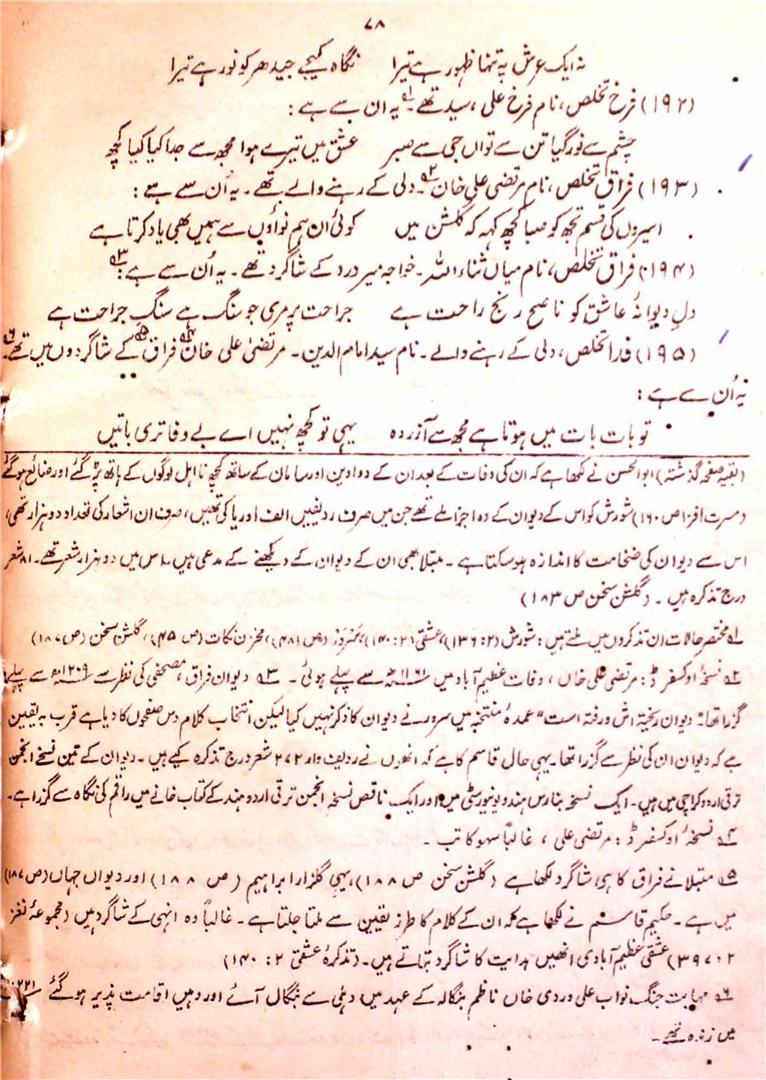 ۷۸
نہ ایک عرش پہ تنہا ظہور ہے تیرا نگاہ کیجے جیدھر کو نور ہے تیرا
(۱۹۲) فرخ تخلص، نام فرخ علی، سید تھے۔ ۱ یہ ان سے ہے :
چشم سے نور گیا تن سے تواں جی سے صبر عشق میں تیرے ہوا مجھ سے جدا کیا کیا کچھ
(۱۹۳) فراق تخلص، نام مرتضیٰ علی خان ۲۔ دلی کے رہنے والے تھے۔ یہ اُن سے ہے :
اسیروں کی قسم تجھ کو صبا کچھ کہہ کہ گلشن میں کوئی ان ہم نواؤں سے ہمیں بھی یاد کرتا ہے
(۱۹۴) فراق تخلص، نام میاں ثناء اللہ۔ خواجہ میر درد کے شاگرد تھے۔ یہ اُن سے ہے : ۳
دلِ دیوانۂ عاشق کو ناصح رنج راحت ہے جراحت پر مری جو سنگ ہے سنگِ جراحت ہے
(۱۹۵) فدا تخلص، دلی کے رہنے والے۔ نام سید امام الدین۔ مرتضیٰ علی خان ۴ فراق ۵ کے شاگردوں میں تھے۔ ۶
یہ اُن سے ہے :
تو بات بات میں ہوتا ہے مجھ سے آزردہ یہی تو کچھ نہیں اے بے وفا تری باتیں
(بقیہ صفحہ گذشتہ) ابوالحسن نے لکھا ہے کہ ان کی وفات کے بعد ان کے دواوین اور سامان کے ساتھ کچھ نا اہل لوگوں کے ہاتھ پڑ گئے اور ضائع ہو گئے
(مسرت افزا ص ۱۶۰) شورش کو اس کے دیوان کے وہ اجزا ملے تھے جن میں صرف ردیفیں الف اور یا کی تھیں، صرف ان اشعار کی تعداد دو ہزار تھی،
اس سے دیوان کی ضخامت کا اندازہ ہو سکتا ہے۔ مبتلا بھی ان کے دیوان کے دیکھنے کے مدعی ہیں، اس میں دو ہزار شعر تھے۔ ۸۱ شعر
درج تذکرہ ہیں۔ (گلشن سخن ص ۱۸۳)
۱ مختصر حالات ان تذکروں میں ملتے ہیں : شورش (۲: ۱۳۶)، عشقی (۲: ۱۴۰)، (ص ۴۸۱)، مخزن نکات (ص ۴۵)، گلشن سخن (ص ۱۸۷)
۲ نسخۂ اوکسفرڈ : مرتضیٰ قلی خاں، وفات عظیم آباد میں ۱۱۶۱ھ سے پہلے ہوئی۔ ۳ دیوان فراق، مصحفی کی نظر سے ۱۲۰۹ھ سے پہلے
گزرا تھا۔ "دیوان ریختہ اش ورفتہ است" عمدۂ منتخبہ میں سرور نے دیوان کا ذکر نہیں کیا لیکن انتخاب کلام دس صفحوں کا دیا ہے قرب بہ یقین
ہے کہ دیوان ان کی نظر سے گزرا تھا۔ یہی حال قاسم کا ہے کہ انھوں نے ردیف وار ۲۷۲ شعر درج تذکرہ کیے ہیں۔ دیوان کے تین نسخے انجمن
ترقی اردو کراچی میں ہیں۔ ایک نسخہ بنارس ہندو یونیورسٹی میں اور ایک ناقص نسخہ انجمن ترقی اردو ہند کے کتاب خانے میں راقم کی نگاہ سے گزرا ہے۔
۴ نسخۂ اوکسفرڈ : مرتضیٰ علی، غالباً سہو کاتب۔
۵ مبتلا نے فراق کا ہی شاگرد لکھا ہے (گلشن سخن ص ۱۸۸)، یہی گلزار ابراہیم (ص ۱۸۸) اور دیوان جہاں (ص ۱۸۷)
میں ہے۔ حکیم قاسم نے لکھا ہے کہ ان کے کلام کا طرز یقین سے ملتا جلتا ہے۔ غالباً وہ انہی کے شاگرد ہیں (مجموعۂ نغز
۲: ۳۹۷) عشقی عظیم آبادی انھیں ہدایت کا شاگرد بتاتے ہیں۔ (تذکرۂ عشقی ۲: ۱۴۰)
۶ مہابت جنگ نواب علی وردی خاں ناظم بنگالہ کے عہد میں دہلی سے بنگال آئے اور وہیں اقامت پذیر ہو گئے
میں زندہ تھے۔